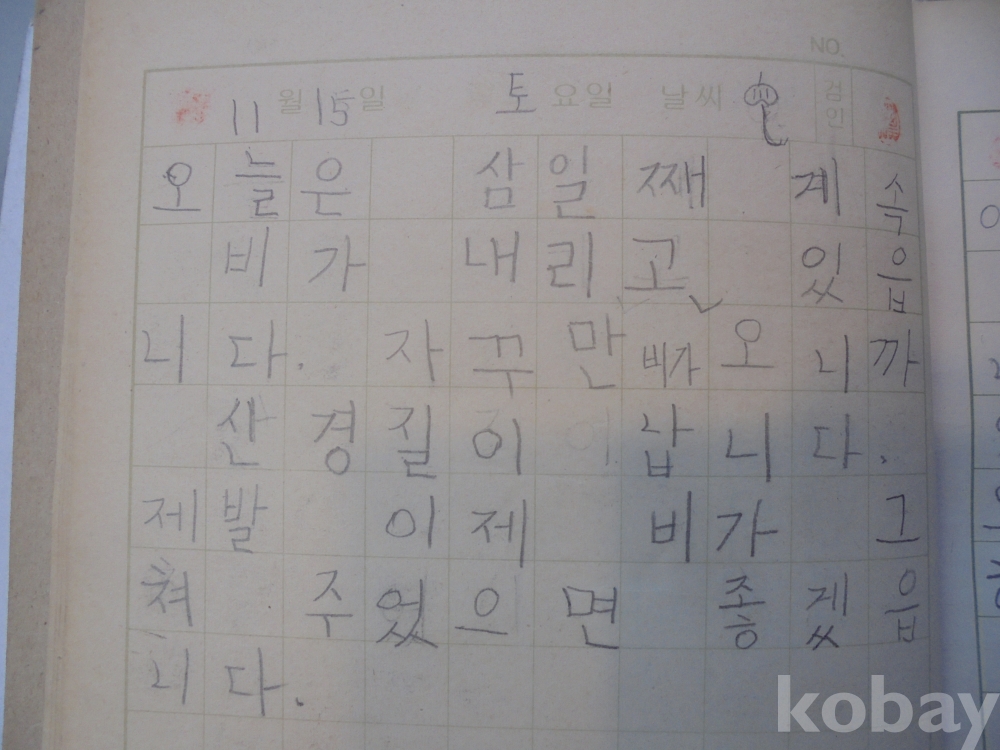 NO.
11 월 15 일 토 요일 날씨 검인
오늘은 삼일째 계속
비가 내리고 있읍
니다. 자꾸만 비가 오니까
산경질이 납니다.
제발 이제 비가 그
쳐 주었으면 좋겠읍
니다.
kobay